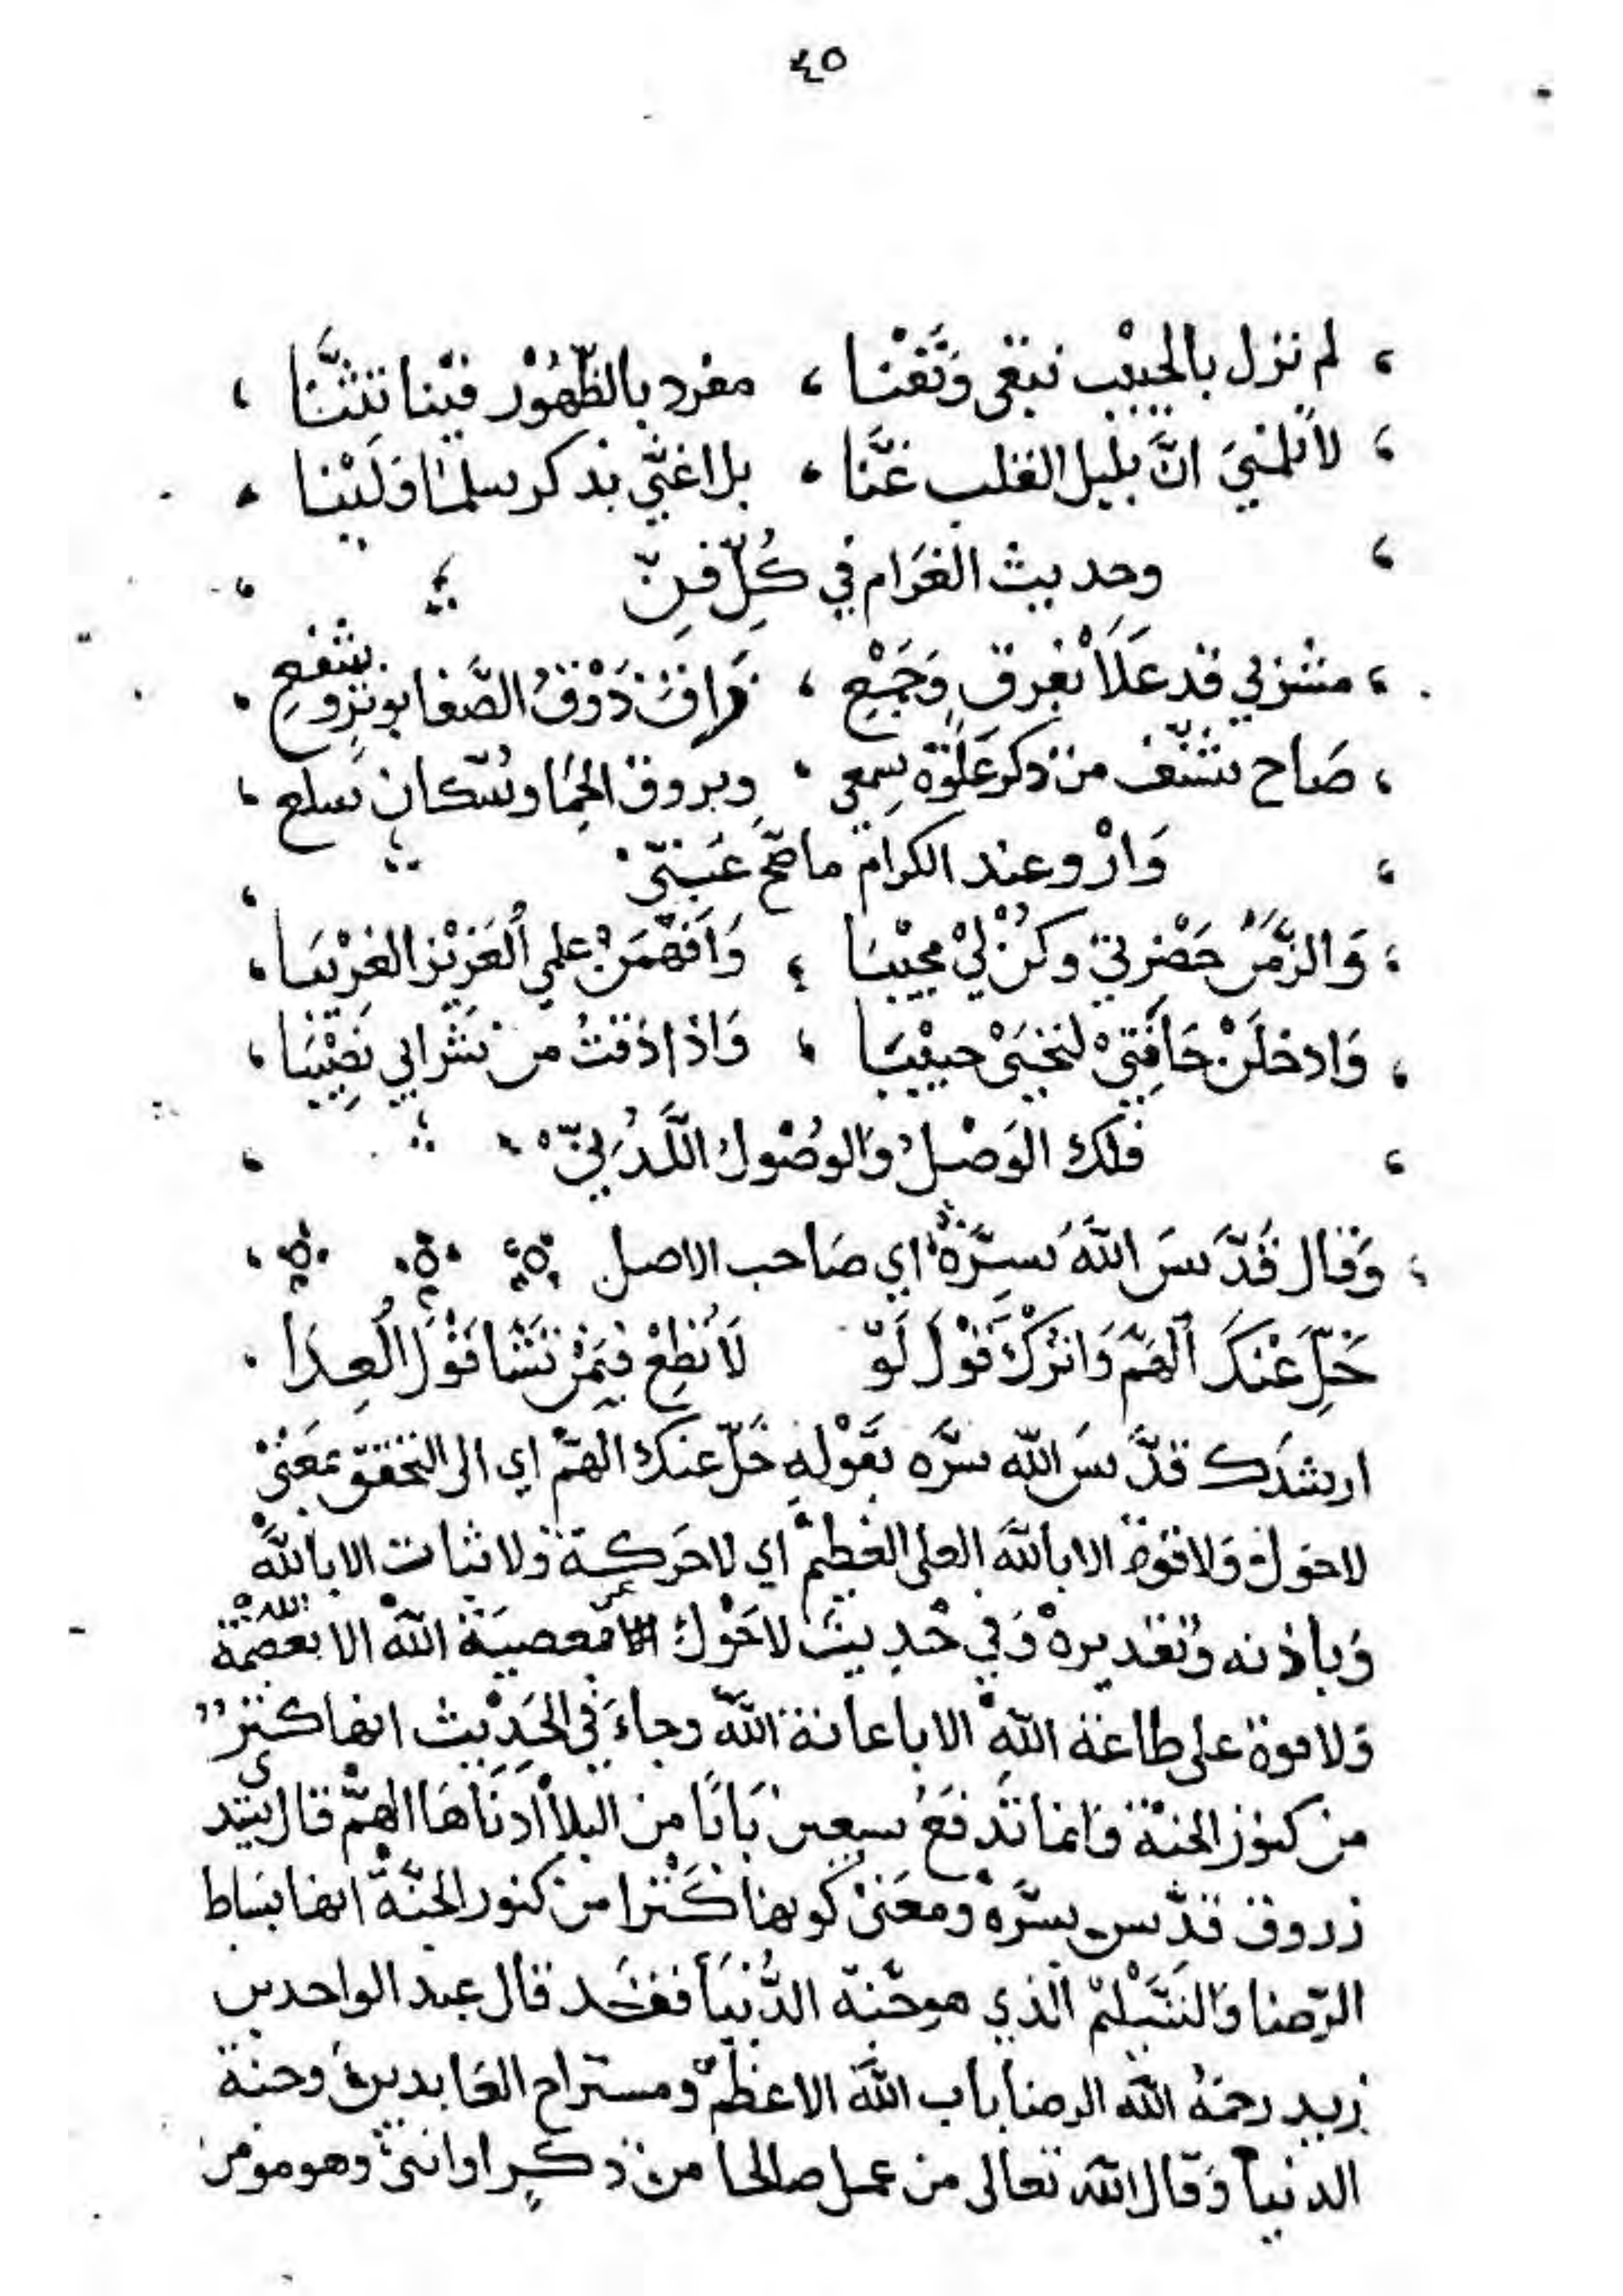 ٤٥
لم نزل بالحبيب نبقى ونفنا ، مفرد بالظهور فينا تثنا ،
لا تلمني ان بلبل القلب غنا ، بل اغثي بذكر سلما ولبنا ،
وحديث الغرام في كل فن
مشربي قد علا بفرق وجمع ، راقت ذوق الصفا بوتر وشفع
صاح شنف من ذكر علوة سمعي ، وبروق الحما وسكان سلع ،
وارو عند الكرام ما صح عني
والزمن حضرتي وكن لي مجيبا ، وافهمن علمي العزيز الغريبا ،
وادخلن حافتي لتجنى حبيبا ، واذا ذقت من شرابي نصيبا ،
فلك الوصل والوصول اللدني
وقال قدس الله سره اي صاحب الاصل
خل عنك الهم واترك قول لو لا تطع فيمن تشا قول العدا
ارشدك قدس الله سره بقوله خل عنك الهم اي الى التحقق بمعنى
لا حول ولا قوة الا بالله العلى العظيم اي لا حركة ولا ثبات الا بالله
وباذنه وتقديره وفي حديث لا حول عن معصية الله الا بعصمة الله
ولا قوة على طاعة الله الا باعانة الله وجاء في الحديث انها كنز
من كنوز الجنة فانما تدفع سبعين بابا من البلا ادناها الهم قال سيدى
زروق قدس سره ومعنى كونها كنزا من كنوز الجنة انها بساط
الرضا والتسليم الذي هو جنة الدنيا فقد قال عبد الواحد بن
زيد رحمه الله الرضا باب الله الاعظم ومستراح العابدين وجنة
الدنيا وقال الله تعالى من عمل صالحا من ذكر او انثى وهو مومن